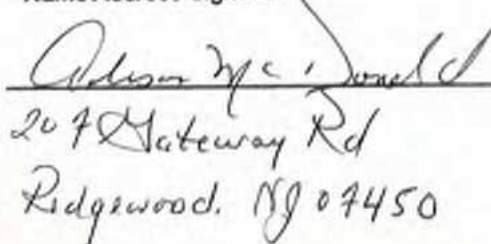 Alison McDonald
207 Gateway Rd
Ridgewood. NJ 07450